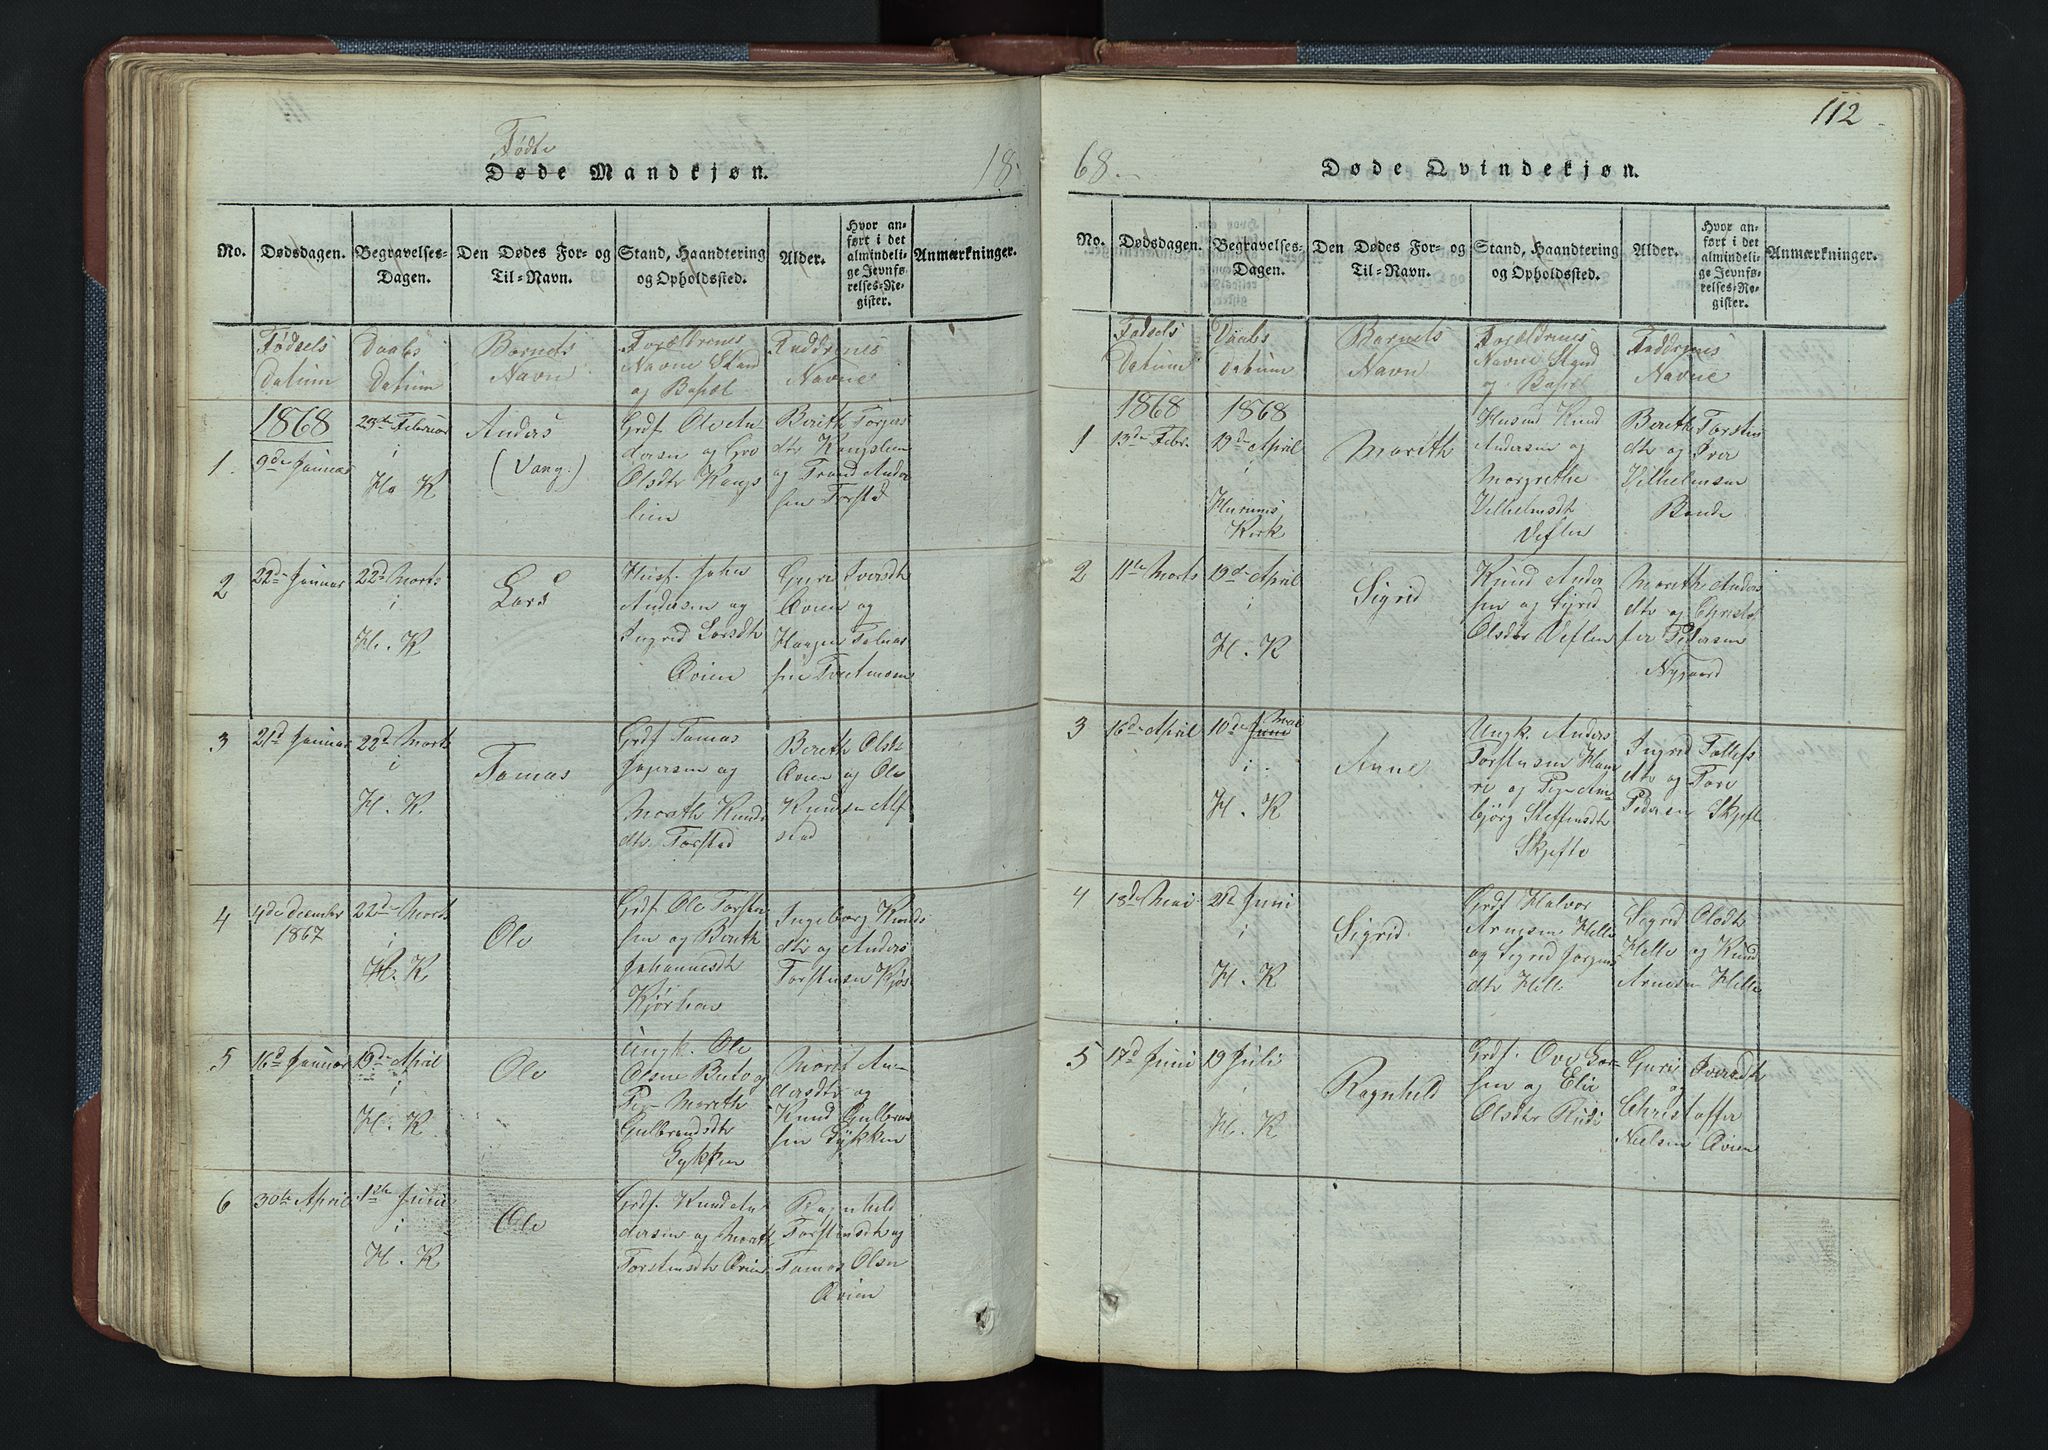 112
Fødte
18
68.
Døde Mandkjøn.
No.
Dødsdagen.
Begravelses-
Dagen.
Den Dødes For- og
Til-Navn.
Stand, Haandtering
og Opholdssted.
Alder.
Hvor an-
ført i det
almindeli-
ge Jevnfø-
relses-Re-
gister.
Anmærkninger.
Fødsels
Datum
Daabs
Datum
Barnets
Navn
Forældrenes
Navne Stand
og Bopæl
Faddrenes
Navne
1868
1.
9de Januar
23de Februar
i
Hs K
Anders
(Vang.)
Grdf Ole An
dersen og Gro
Olsdtr Kongs
lien
Berith Torgers
dtr Kongslien
og Trond Ander
sen Torstad
2
22de Januar
22de Marts
i
H. K
Lars
Husf. John
Andersen og
Ingrid Larsdtr
Øvien
Guri Iversdtr
Øvien og
Haagen Tobias
sen Tveitmoen
3
21d Januar
22de Marts
i
H. K.
Tomas
Grdf Tomas
og
Marith Knuds
dtr Torstad
Berith Olsdtr
Øvien og Ole
Knudsen Alf
stad
4
4de December
1867
22de Marts
i
H. K
Ole
Grdf Ole Torsten
sen og Berith
Johannesdtr
Kjørlien
Ingeborg Knuds
dtr og Anders
Torstensen Kjøs
5
16d Januar
19de April
i
H. K
Ole
Ungk. Ole
Olsen Belo og
Pig. Marith
Gulbrandsdtr
Sykken
Marit An-
dersdtr og
Knud Gulbrand
sen Sykken
6
30te April
1ste Juni
i
H. K
Ole
Grdf. Knud An
dersen og Marith
Torstensdtr Øvien
Ragnhild
Torstensdtr og
Tomas Olsen
Øvien
Døde Qvindekjøn.
No.
Dødsdagen.
Begravelses-
Dagen.
Den Dødes For- og
Til-Navn.
Stand, Haandtering
og Opholdssted.
Alder.
Hvor an-
ført i det
almindeli-
ge Jevnfø-
relses-Re-
gister.
Anmærkninger.
Fødsels
Datum
Daabs
Datum
Barnets
Navn
Forældrenes
Navne Stand
og Bopæl
Faddrenes
Navne
1868
1
13de Febr.
1868
19de April
i
Hurums
Kirk
Marith
Husmd Knud
Andersen og
Margrethe
Vilhelmsdt
Veflen
Berith Torstens
dtr og Iver
Vilhelmsen
Bunde
2
11te Marts
19d April
i
H. K
Sigrid
Knud Ander
sen og Sigrid
Olsdtr Veflen
Marith Anders
dtr og Christo
fer Pedersen
Nygaard
3
16d April
10de Juni Mai
i
H. K
Anne
Ungk Anders
Torstensen Ham
re og Pige Am-
bjørg Steffensdtr
Skjefte
Ingrid Tollefs
dtr og Tore
Pedersen Skjeft
4
18d Mai
21d Juni
i
H. K
Sigrid
Grdf Halvor
Arnesen Helle
og Sigrid Jørgens
dtr Helle
Sigrid Olsdtr
Helle og Knud
Arnesen Helle
5
17d Juni
19 Juli
i
H. K
Ragnhild
Grdf. Ove Lar-
sen og Elie
Olsdtr Rudi
Guri Iversdtr
og
Christoffer
Nielsen Øvien